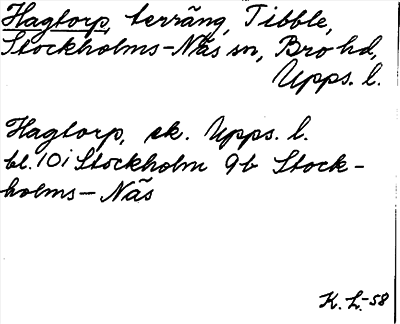 Hagtorp, terräng, Tibble,
Stockholms-Näs sn, Bro hd,
Upps. l.
Hagtorp, ek. Upps. l.
bl. 10i Stockholm 9b Stock-
holms-Näs
K. L.-58